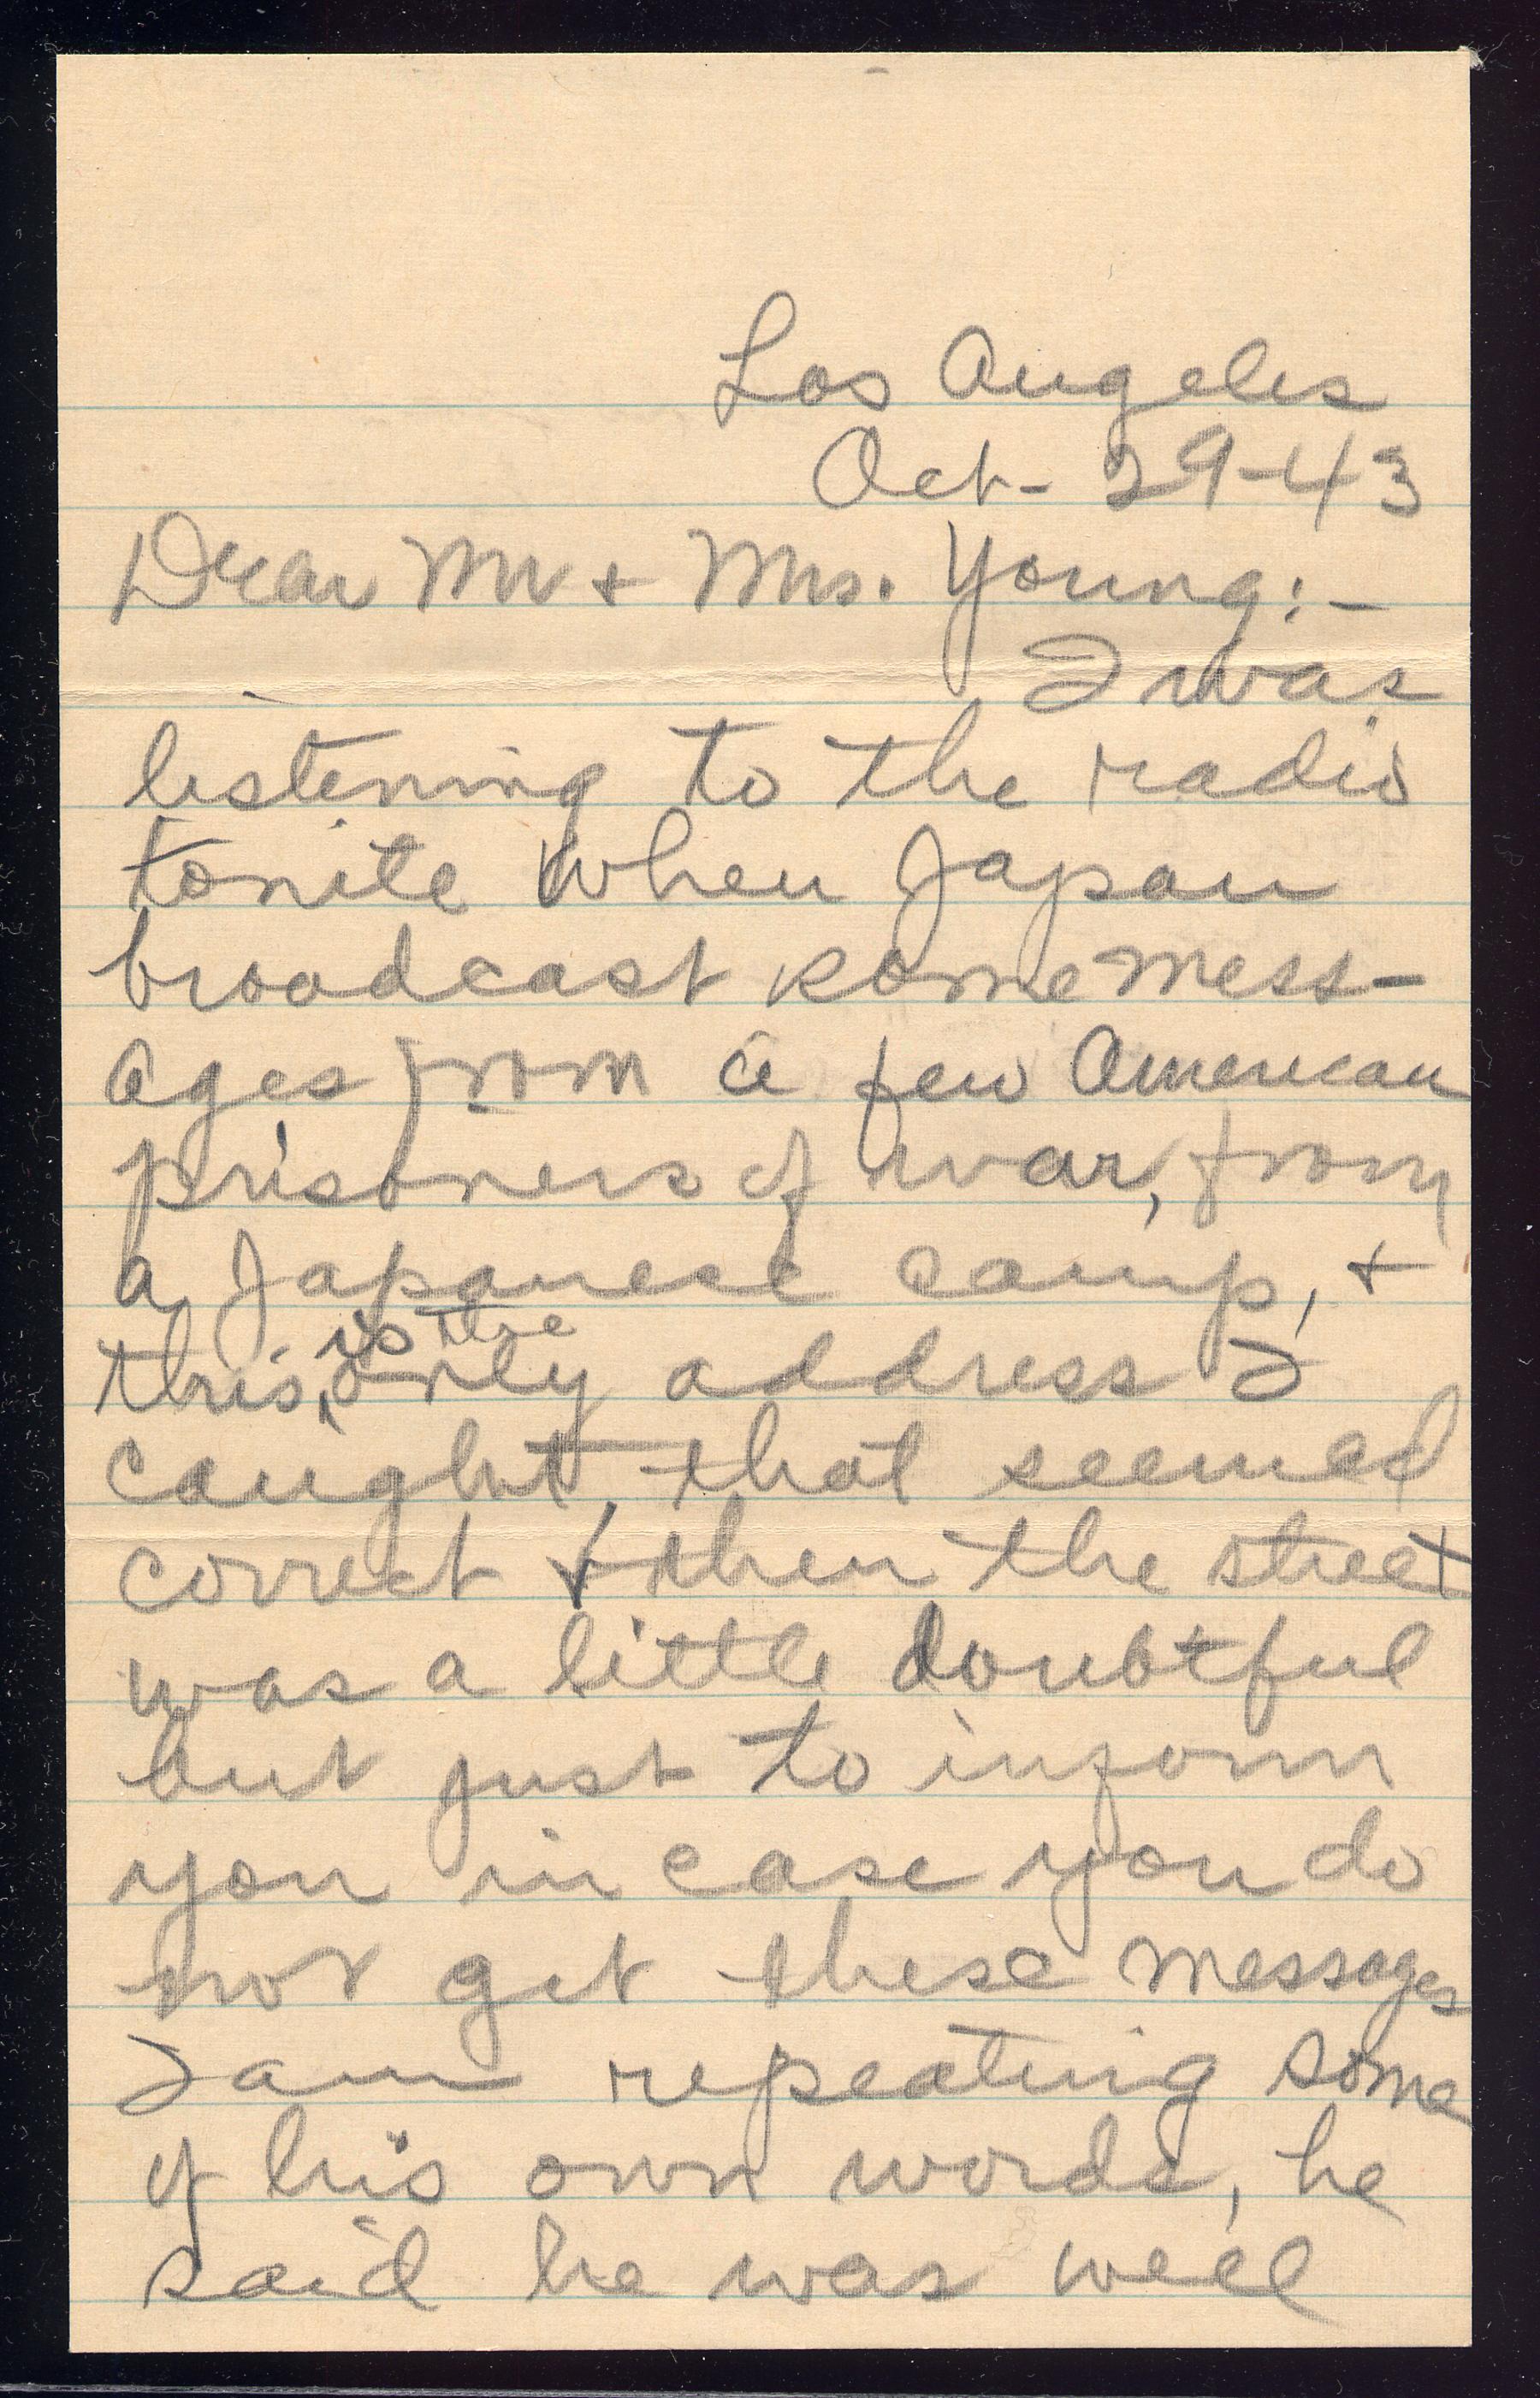 Los Angeles
Oct- 29-43
Dear Mr + Mrs. Young:-
I was
listening to the radio
tonite when Japan
broadcast some mess-
ages from a few American
prisoners of war, from
a Japanese camp, +
this is the only address I
caught, that seemed
correct + then the street
was a little doubtful
but just to inform
you in case you do
not get these messages
I am repeating some
of his own words, he
said he was well